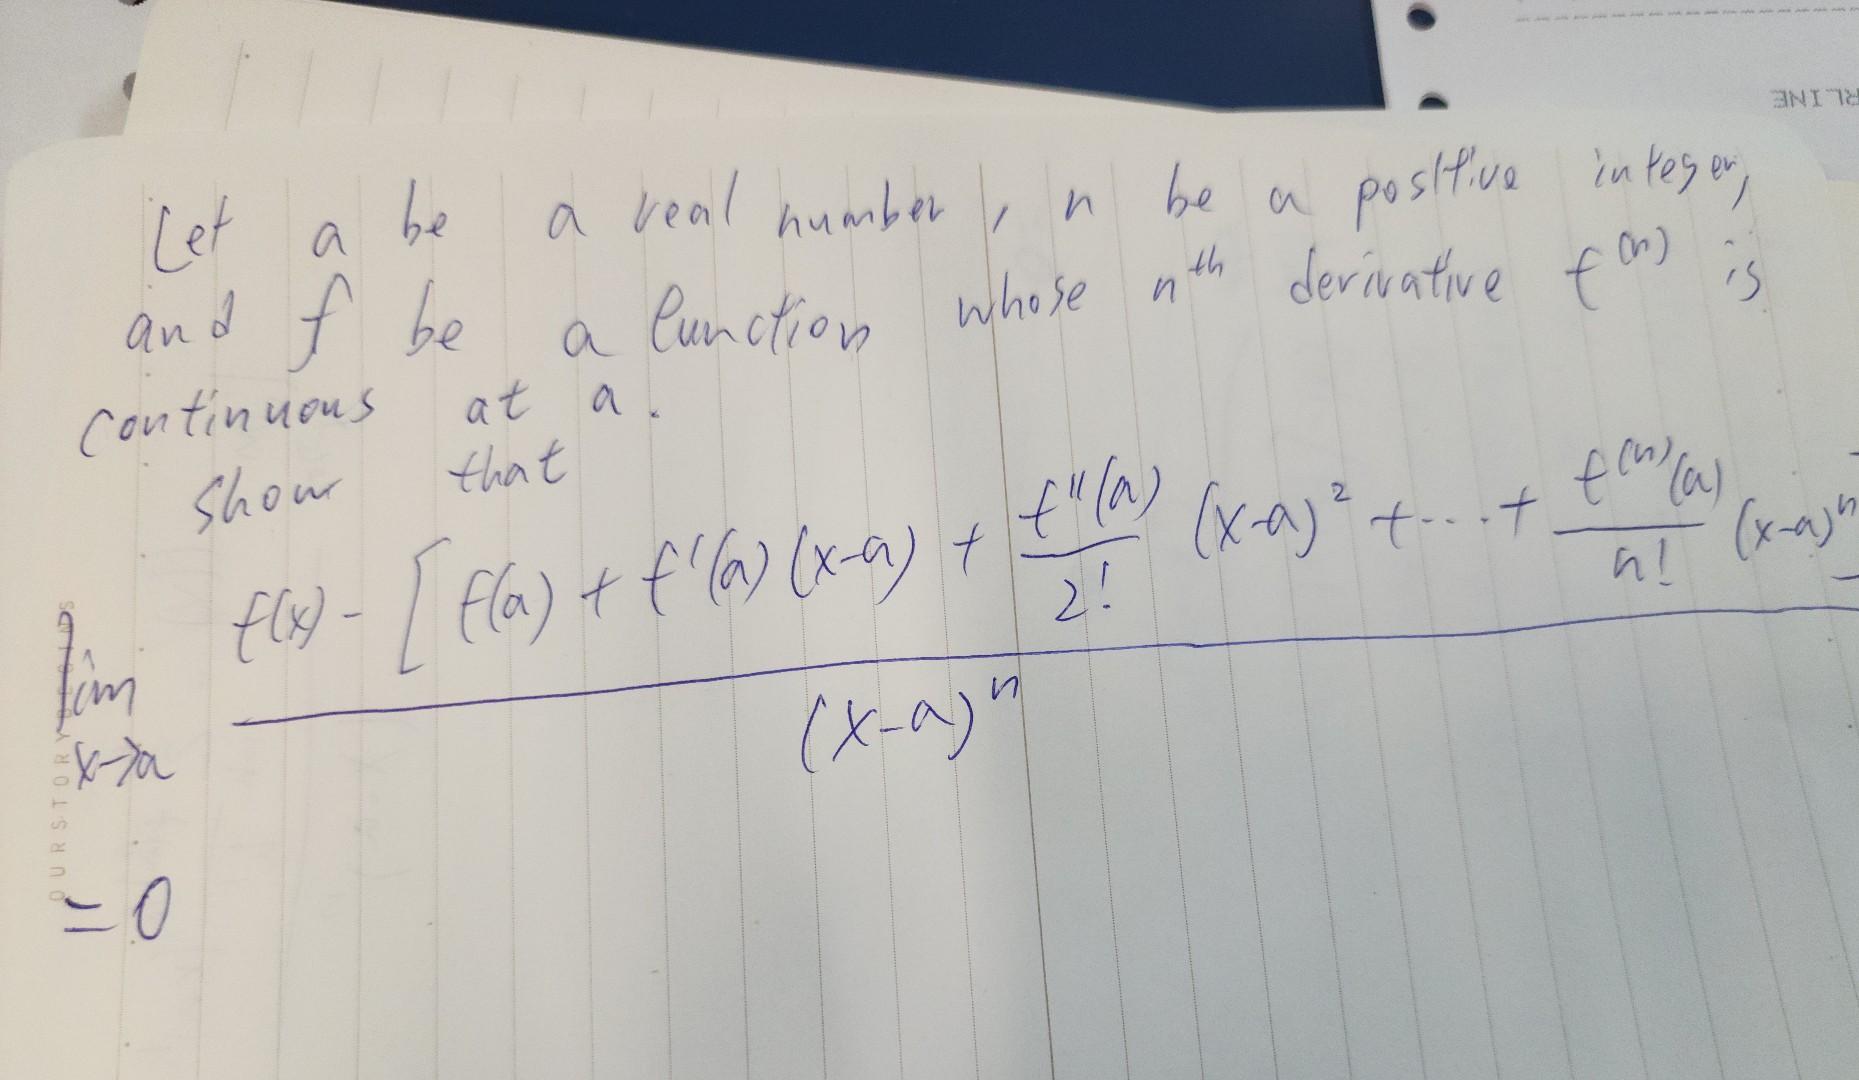 RLINE
Let a be a real number, n be a positive integer,
and f be a function whose nth derivative f^(n) is
continuous at a.
Show that
lim x→a f(x) - [f(a) + f'(a)(x-a) + f''(a)/2! (x-a)² + ... + f^(n)(a)/n! (x-a)^n] / (x-a)^n
= 0